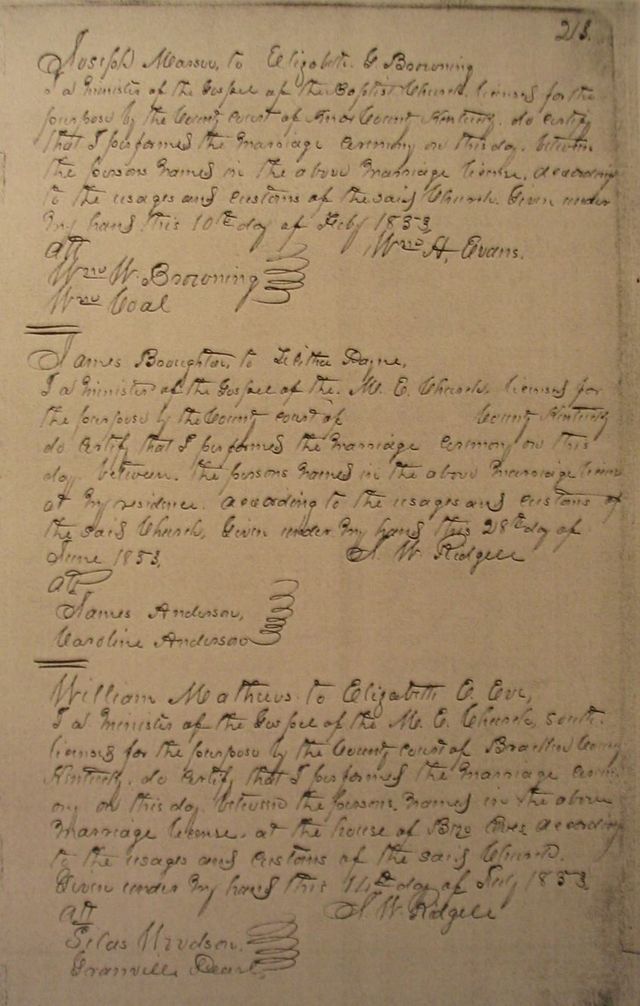 213.
Joseph Marsee, to Elizabeth G Browning
I a Minister of the Gospel of the Baptist Church licensed for the
purpose by the County Court of Knox County Kentucky. do certify
that I performed the Marriage ceremony on this day. between
the persons named in the above Marriage license, according
to the usages and customs of the said Church. Given under
My hand this 10th day of Feby 1853
Att Wm A, Evans.
Wm W. Browning
Wm Coal
James Boughton, to Tibitha Payne,
I a Minister of the Gospel of the. M. E. Church, licensed for
the purpose by the County Court of County Kentucky
do certify that I performed the Marriage ceremony on this
day. between. the persons named in the above Marriage license
at My residence. according to the usages and customs of
the said Church, Given under My hand this 28th day of
June 1853, S. W. Ridgell
Att
James Anderson,
Caroline Anderson
William Mathews to Elizabeth E. Eve,
I a Minister of the Gospel of the M. E. Church, South.
licensed for the purpose by the County Court of Bracken County
Kentucky. do certify that I performed the Marriage cerem
ony on this day between the persons. named in the above
Marriage license. at the house of Eves according
to the usages and customs of the said Church.
Given under My hand this 14th day of July 1853
Att S. W. Ridgell
Silas Woodson.
Granville Pearl,